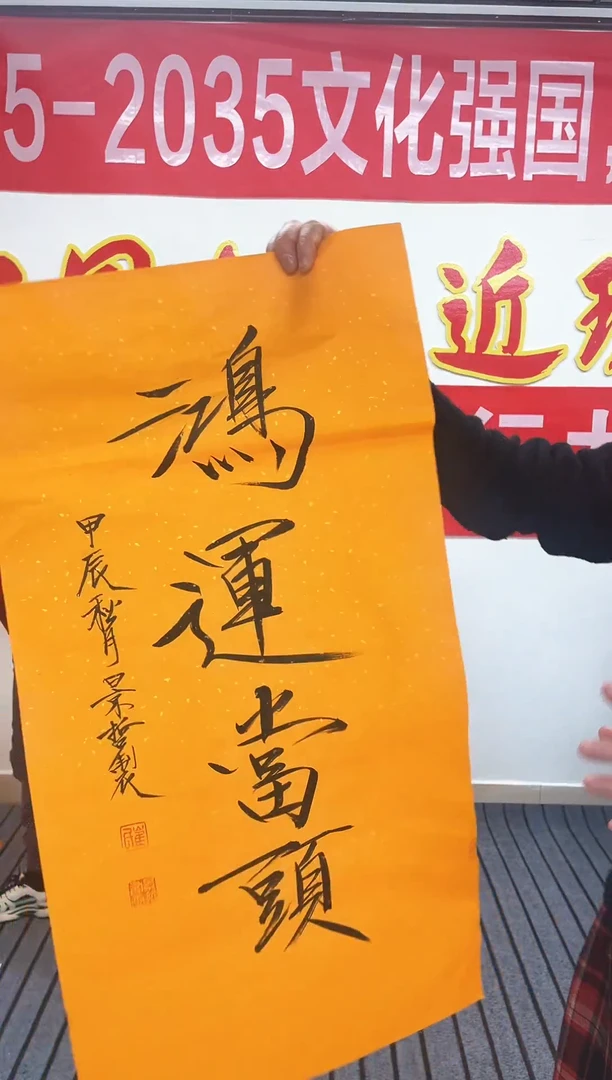 5-2035文化强国
近
鴻運當頭
甲辰秋月 景哲製